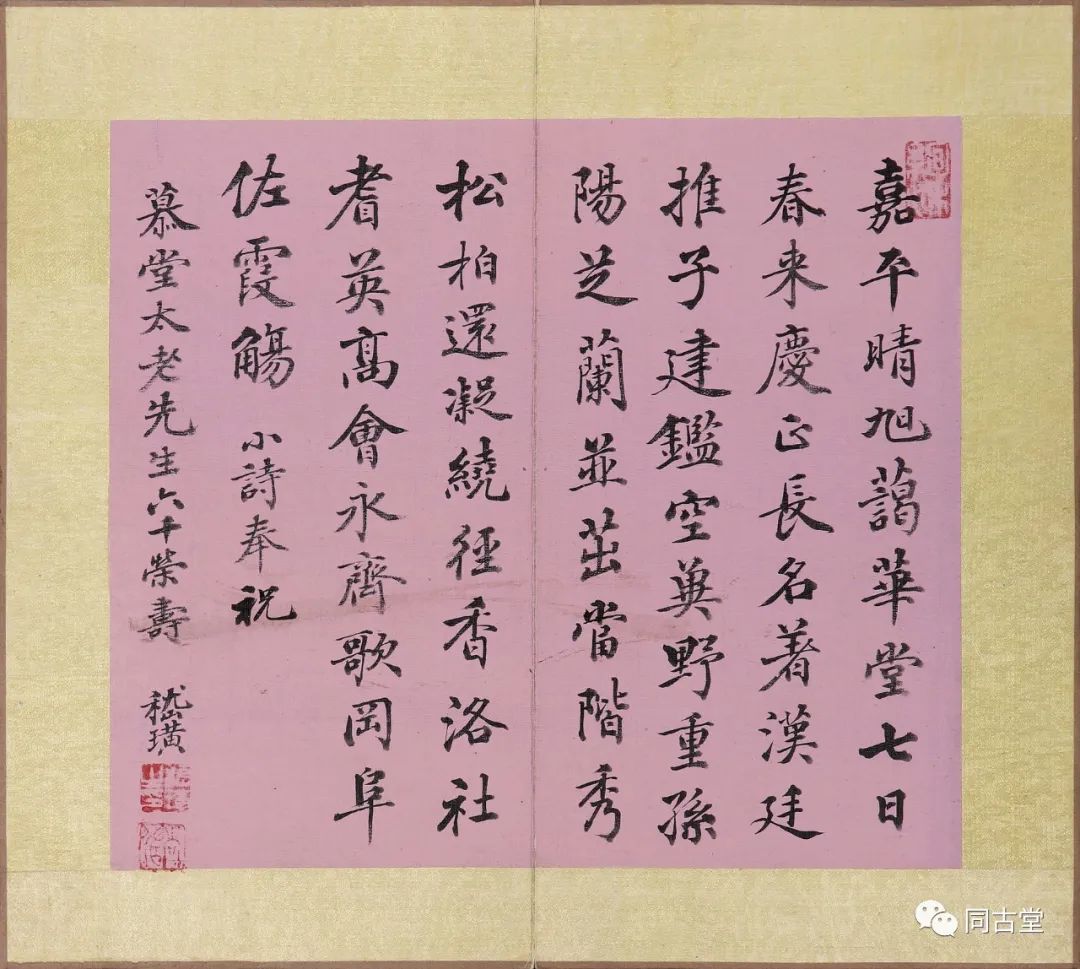 嘉平晴旭藹華堂七日
春来慶正長名著漢廷
推子建鑑空兾野重孫
陽芝蘭並茁當階秀
松柏還凝繞徑香洛社
耆英髙會永齊歌岡阜
佐霞觴 小詩奉祝
慕堂太老先生六十榮壽
嵇璜
同古堂